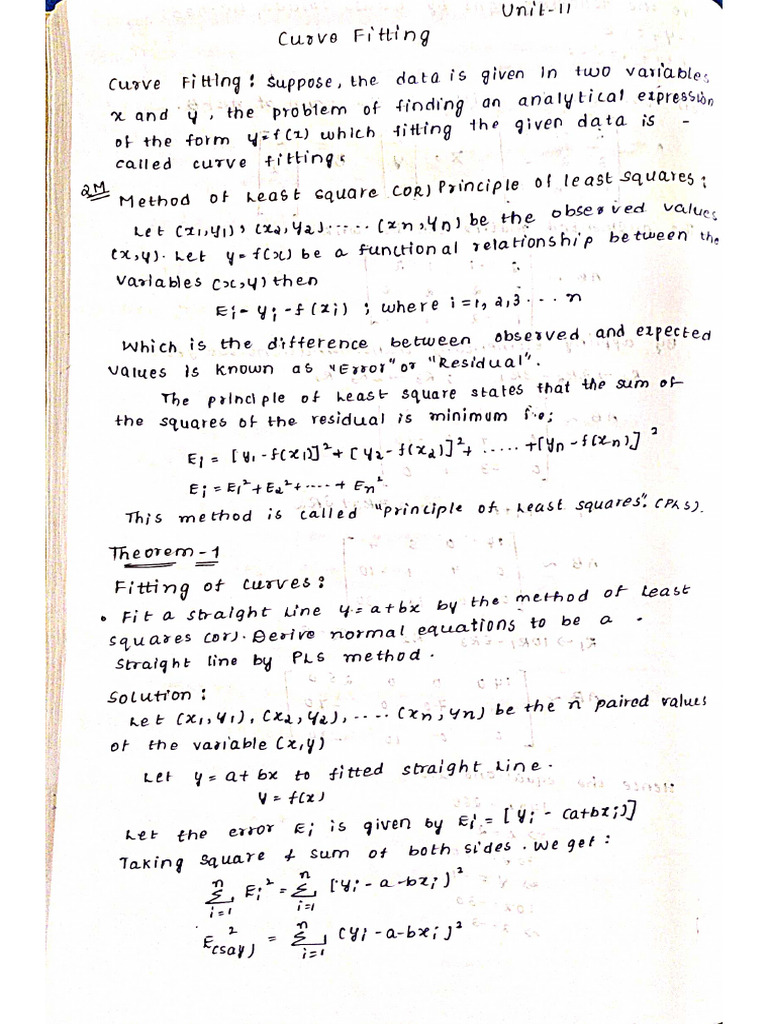 Unit-II
Curve Fitting
Curve Fitting: Suppose, the data is given in two variables
x and y, the problem of finding an analytical expression
of the form y=f(x) which fitting the given data is -
called curve fitting.
2M Method of Least Square (OR) Principle of least squares:
Let (x1,y1), (x2,y2)..... (xn,yn) be the observed values
(x,y). Let y=f(x) be a functional relationship between the
variables (x,y) then
Ei - yi - f(xi) ; where i=1, 2,3... n
Which is the difference between observed and expected
values is known as "Error" or "Residual".
The principle of Least square states that the sum of
the squares of the residual is minimum i.e;
Ei = [y1-f(x1)]² + [y2-f(x2)]² + ..... + [yn-f(xn)]²
Ei = E1² + E2² + ..... + En²
This method is called "Principle of Least squares". (PLS).
Theorem-1
Fitting of curves:
• Fit a straight line y=a+bx by the method of Least
squares (or). Derive normal equations to be a -
straight line by PLS method.
Solution:
Let (x1,y1), (x2,y2), .... (xn,yn) be the n paired values
of the variable (x,y)
Let y=a+bx to fitted straight line.
y=f(x)
Let the error Ei is given by Ei = [yi - (a+bxi)]
Taking square & sum of both sides. we get:
n∑i=1 Ei² = n∑i=1 [yi - a - bxi]²
E²(say) = n∑i=1 (yi - a - bxi)²